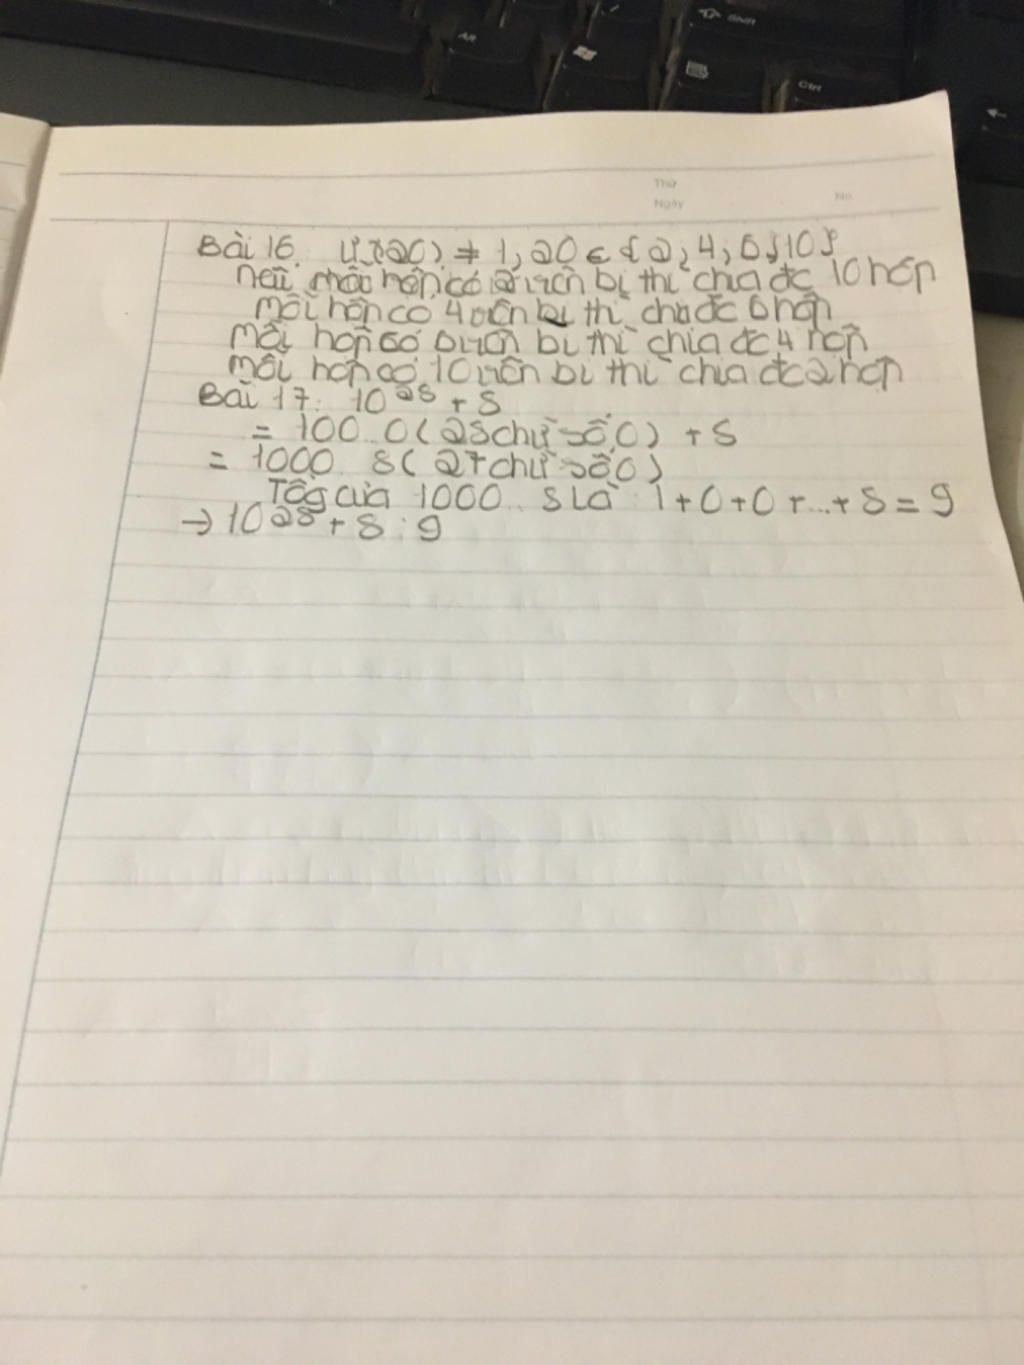 Alt
Shift
Ctrl
Thứ
Ngày
No
Bài 16. Ư(20) ≠ 1, 20 ∈ {2; 4; 5; 10}
nếu mỗi hộp có 2 viên bi thì chia đc 10 hộp
mỗi hộp có 4 viên bi thì chia đc 5 hộp
mỗi hộp có 5 viên bi thì chia đc 4 hộp
mỗi hộp có 10 viên bi thì chia đc 2 hộp
Bài 17: 10²⁸ + 8
= 100...0 (28 chữ số 0) + 8
= 1000...8 (27 chữ số 0)
Tổg của 1000...8 là: 1+0+0+...+8=9
→ 10²⁸ + 8 ⋮ 9